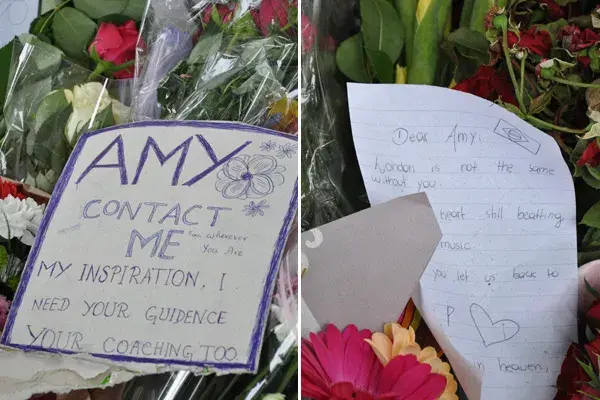 AMY
CONTACT
ME from wherever
You Are
MY INSPIRATION, I
NEED YOUR GUIDENCE
YOUR COACHING TOO
Dear Amy,
London is not the same
without you.
heart still beating
music
you let us back to
P
n heaven,